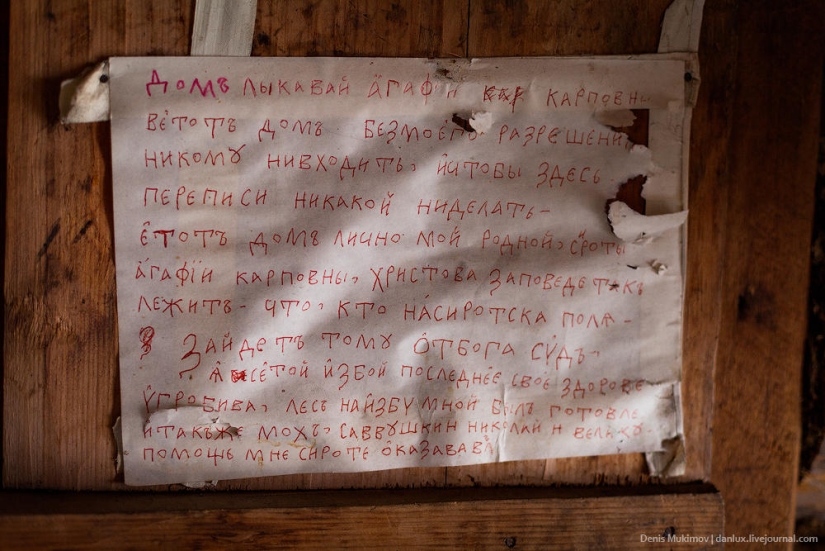 ДОМЪ ЛЫКАВАЙ АГАФІИ КАРПОВН
ВЕТОТЪ ДОМЪ БЕЗМОЕГО РАЗРЕШЕНИ
НИКОМУ НИВХОДИТЬ, ИЧТОБЫ ЗДЕСЬ
ПЕРЕПИСИ НИКАКОЙ НИДЕЛАТЬ-
ЕТОТЪ ДОМЪ ЛИЧНО МОЙ РОДНОЙ, СИРОТЫ
АГАФІИ КАРПОВНЫ, ХРИСТОВА ЗАПОВЕДЕ ТАКЪ
ЛЕЖИТЬ- ЧТО, КТО НАСИРОТСКА ПОЛЯ-
ЗАЙДЕТЪ ТОМУ ОТБОГА СУДЪ-
Я СЕТОЙ ИЗБОЙ ПОСЛЕДНЕЕ СВОЕ ЗДОРОВЕ
УГРОБИВА, ЛЕСЬ НАИЗБУ МНОЙ БЫЛЪ ГОТОВЛЕ
ИТАКЪЖЕ МОХЪ, САВВУШКИН НИКОЛАЙ Н
ПОМОЩЬ МНЕ СИРОТЕ ОКАЗАВАВ
Denis Mukimov | danlux.livejournal.com